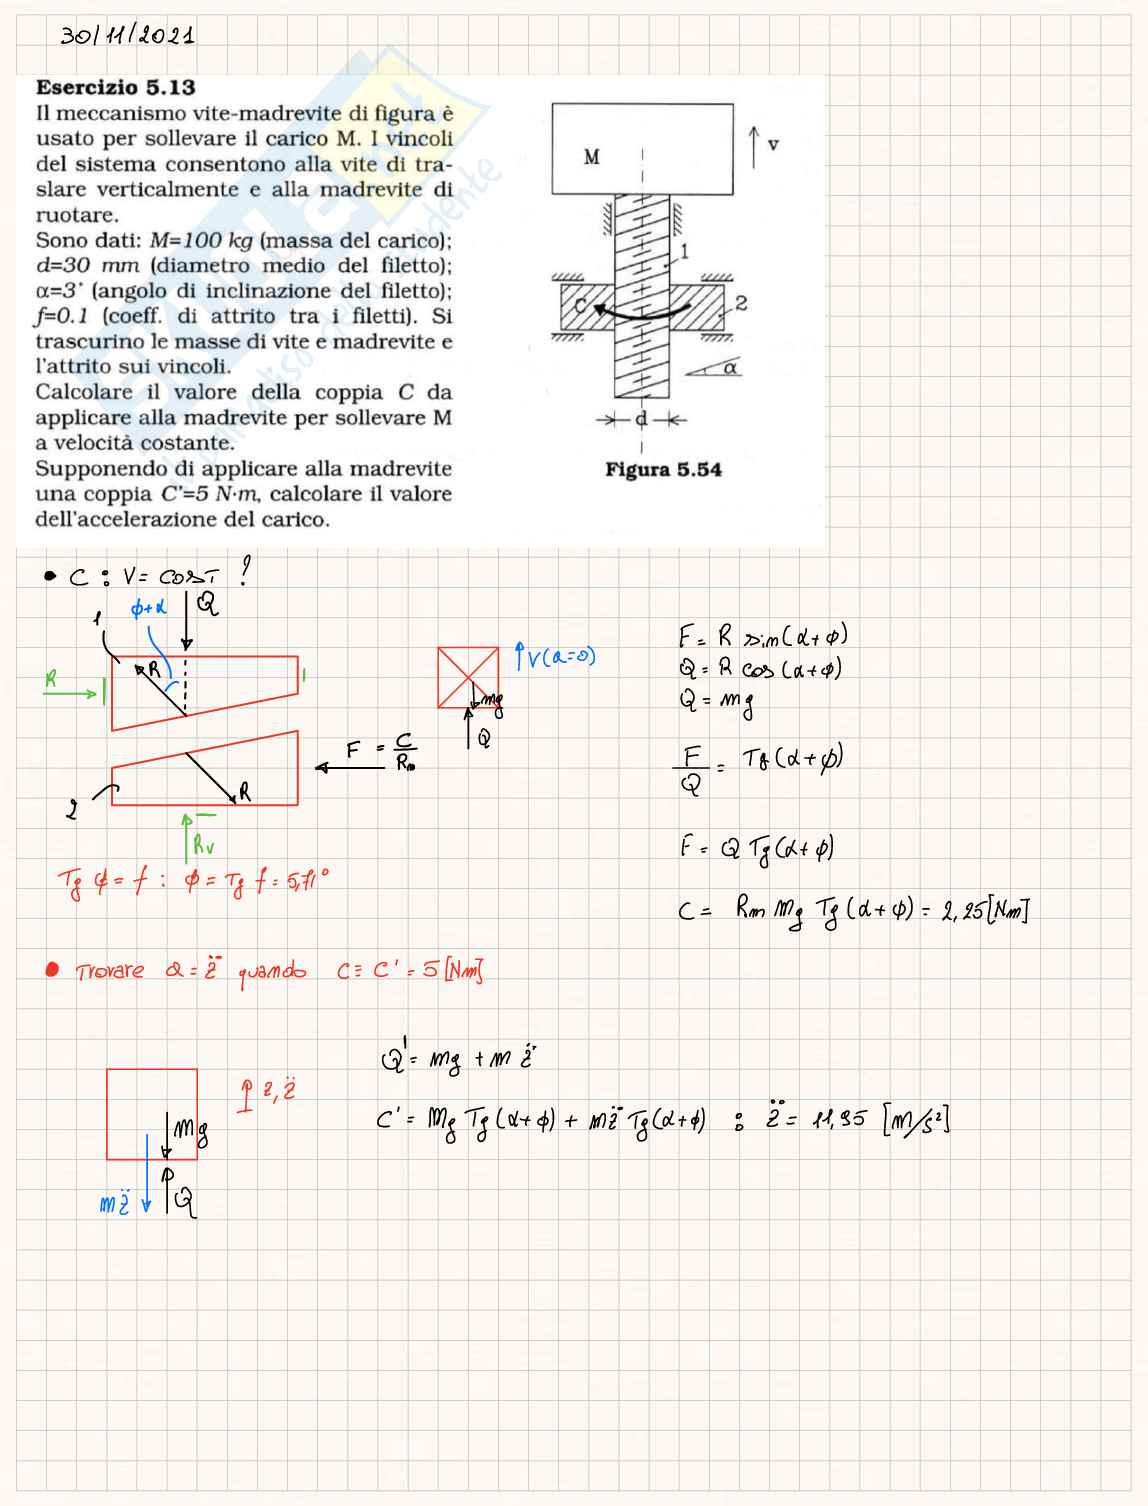 30/11/2021
Esercizio 5.13
Il meccanismo vite-madrevite di figura è
usato per sollevare il carico M. I vincoli
del sistema consentono alla vite di tra-
slare verticalmente e alla madrevite di
ruotare.
Sono dati: M=100 kg (massa del carico);
d=30 mm (diametro medio del filetto);
α=3° (angolo di inclinazione del filetto);
f=0.1 (coeff. di attrito tra i filetti). Si
trascurino le masse di vite e madrevite e
l'attrito sui vincoli.
Calcolare il valore della coppia C da
applicare alla madrevite per sollevare M
a velocità costante.
Supponendo di applicare alla madrevite
una coppia C'=5 N·m, calcolare il valore
dell'accelerazione del carico.
M
v
1
C
2
α
d
Figura 5.54
• C : V = COST ?
1
ϕ+α
Q
R
R
V(a=0)
mg
Q
F = C/Rm
2
R
Rv
Tg ϕ = f : ϕ = Tg f = 5,71°
F = R sin(α+ϕ)
Q = R cos(α+ϕ)
Q = mg
F/Q = Tg(α+ϕ)
F = Q Tg(α+ϕ)
C = Rm Mg Tg(α+ϕ) = 2,25[Nm]
• Trovare a = z̈ quando C ≡ C' = 5[Nm]
z, z̈
mg
mz̈
Q
Q' = mg + m z̈
C' = Mg Tg(α+ϕ) + mz̈ Tg(α+ϕ) : z̈ = 11,95 [m/s²]